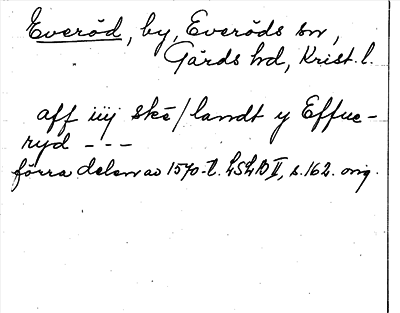 Everöd, by, Everöds sn,
Gärds hd, Krist. l.
aff iiij skē/landt y Effue-
ryd - - -
förra delen av 1570-t. LSLB II, s. 162. orig.